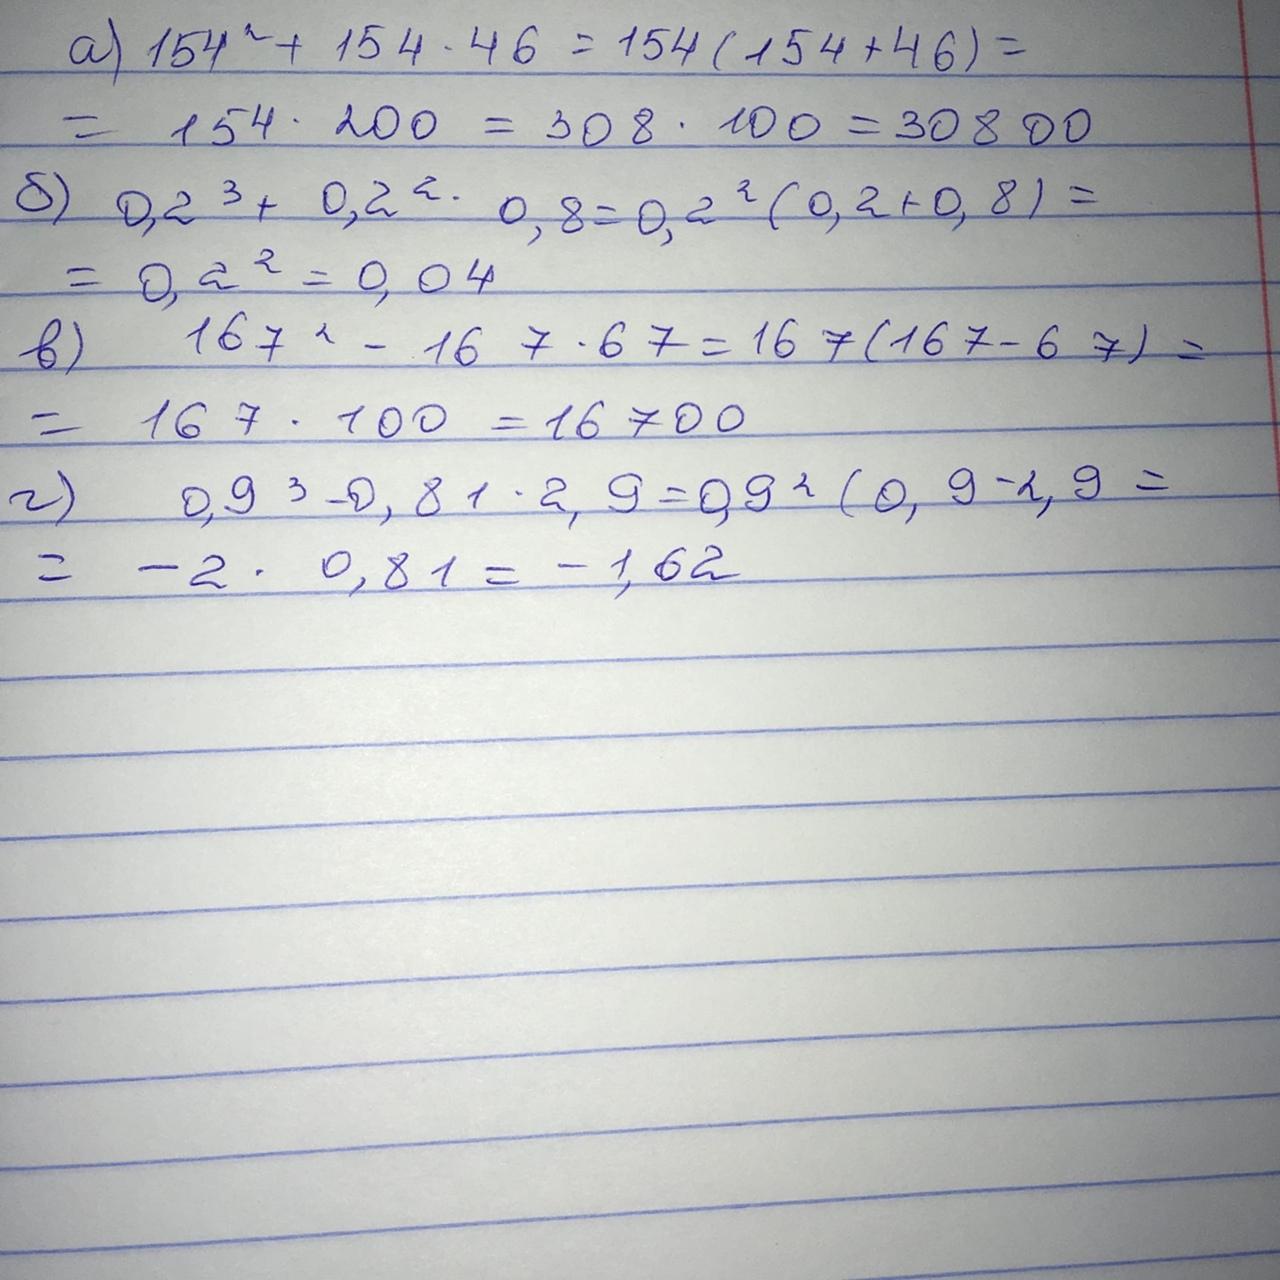 а) 154² + 154 · 46 = 154(154+46) =
= 154 · 200 = 308 · 100 = 30800
б) 0,2³ + 0,2² · 0,8 = 0,2²(0,2+0,8) =
= 0,2² = 0,04
в) 167² - 167 · 67 = 167(167-67) =
= 167 · 100 = 16700
г) 0,9³ - 0,81 · 2,9 = 0,9² (0,9-2,9 =
= -2 · 0,81 = -1,62